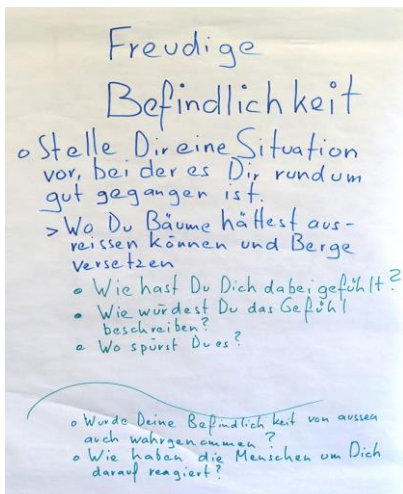 Freudige
Befindlichkeit
o Stelle Dir eine Situation
vor, bei der es Dir rundum
gut gegangen ist.
> Wo Du Bäume hättest aus-
reissen können und Berge
versetzen
• Wie hast Du Dich dabei gefühlt?
• Wie würdest Du das Gefühl
beschreiben?
• Wo spürst Du es?
o Wurde Deine Befindlichkeit von aussen
auch wahrgenommen?
o Wie haben die Menschen um Dich
darauf reagiert?